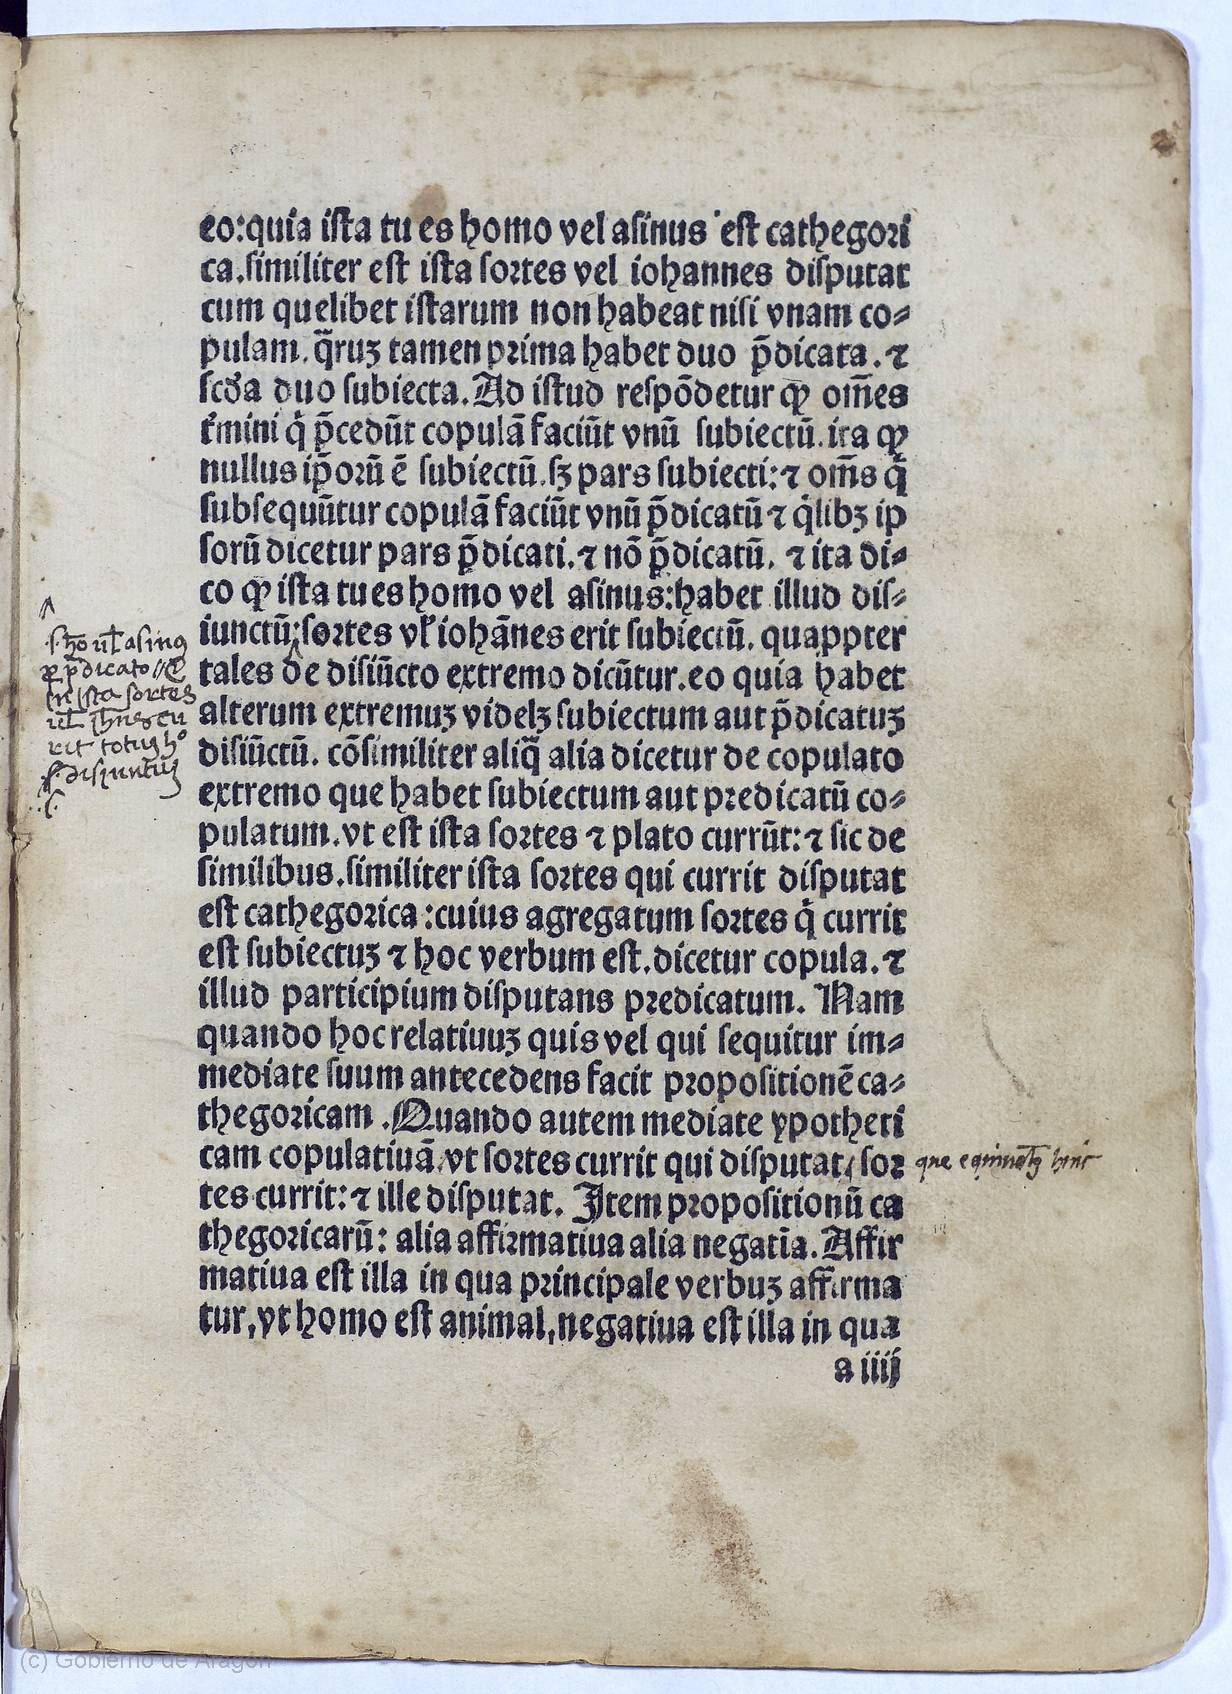 eo:quia ista tu es homo vel asinus est cathegori
ca.similiter est ista sortes vel iohannes disputat
cum quelibet istarum non habeat nisi vnam co⸗
pulam.q̄ruꝫ tamen prima habet duo p̄dicata.⁊
scd̓a duo subiecta.Ad istud respōdetur ꝙ om̄es
t̓mini q̇ p̄cedūt copulā faciūt vnū subiectū.ita ꝙ
nullus ip̄orū ē subiectū.sꝫ pars subiecti:⁊ om̄s q̇
subsequūtur copulā faciūt vnū p̄dicatū ⁊ q̇libꝫ ip
sorū dicetur pars p̄dicati.⁊ nō p̄dicatū. ⁊ ita di⸗
co ꝙ ista tu es homo vel asinus:habet illud dis⸗
iunctū:sortes vl̓ iohānes erit subiectū. quappter
tales de disiūcto extremo dicūtur.eo quia habet
alterum extremuꝫ videlꝫ subiectum aut p̄dicatuꝫ
disiūctū. cōsimiliter aliq̄ alia dicetur de copulato
extremo que habet subiectum aut predicatū co⸗
pulatum.vt est ista sortes ⁊ plato currūt:⁊ sic de
similibus.similiter ista sortes qui currit disputat
est cathegorica:cuius agregatum sortes q̇ currit
est subiectuꝫ ⁊ hoc verbum est.dicetur copula.⁊
illud participium disputans predicatum. Nam
quando hoc relatiuuꝫ quis vel qui sequitur im⸗
mediate suum antecedens facit propositionē ca⸗
thegoricam .Quando autem mediate ypotheti
cam copulatiuā.vt sortes currit qui disputat, sor
tes currit:⁊ ille disputat. Item propositionū ca
thegoricarū: alia affirmatiua alia negatīa.Affir
matiua est illa in qua principale verbuꝫ affirma
tur,vt homo est animal,negatiua est illa in qua
a iiij
.s. hō vl̄ asinꝯ
p̄dicato
in ista sortes
vl̄
rit totuꝫ hº
disiunctuꝫ
que
(c) Gobierno de Aragón